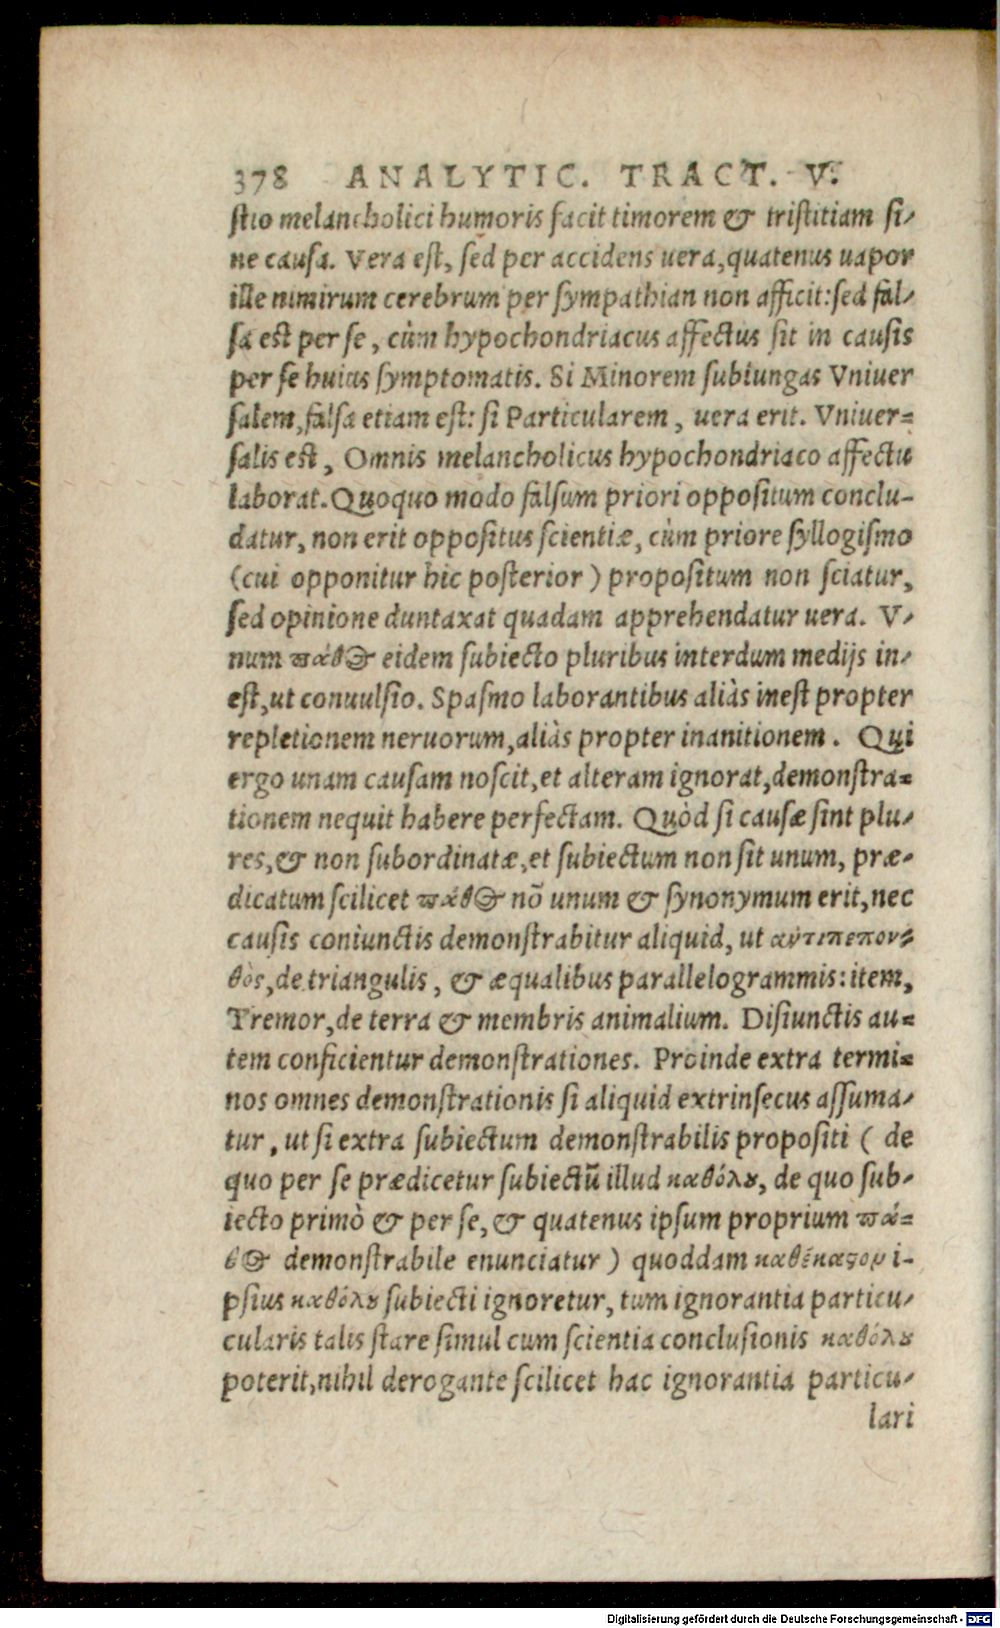 378 ANALYTIC. TRACT. V.
stio melancholici humoris facit timorem & tristitiam si-
ne causa. Vera est, sed per accidens uera, quatenus uapor
ille nimirum cerebrum per sympathian non afficit: sed fal-
sa est per se, cùm hypochondriacus affectus sit in causis
per se huius symptomatis. Si Minorem subiungas Vniuer
salem, falsa etiam est: si Particularem, uera erit. Vniuer-
salis est, Omnis melancholicus hypochondriaco affectu
laborat. Quoquo modo falsum priori oppositum conclu-
datur, non erit oppositus scientiæ, cùm priore syllogismo
(cui opponitur hic posterior) propositum non sciatur,
sed opinione duntaxat quadam apprehendatur uera. V-
num πάθος eidem subiecto pluribus interdum medijs in-
est, ut conuulsio. Spasmo laborantibus aliàs inest propter
repletionem neruorum, aliàs propter inanitionem. Qui
ergo unam causam noscit, et alteram ignorat, demonstra-
tionem nequit habere perfectam. Quòd si causæ sint plu-
res, & non subordinatæ, et subiectum non sit unum, præ-
dicatum scilicet πάθος nõ unum & synonymum erit, nec
causis coniunctis demonstrabitur aliquid, ut αὐτιπεπον-
θὸς, de triangulis, & æqualibus parallelogrammis: item,
Tremor, de terra & membris animalium. Disiunctis au-
tem conficientur demonstrationes. Proinde extra termi-
nos omnes demonstrationis si aliquid extrinsecus assuma-
tur, ut si extra subiectum demonstrabilis propositi (de
quo per se prædicetur subiectũ illud καθόλου, de quo sub-
iecto primò & per se, & quatenus ipsum proprium πά-
θος demonstrabile enunciatur) quoddam καθέκαστον i-
psius καθόλου subiecti ignoretur, tum ignorantia particu-
cularis talis stare simul cum scientia conclusionis καθόλου
poterit, nihil derogante scilicet hac ignorantia particu-
lari
Digitalisierung gefördert durch die Deutsche Forschungsgemeinschaft - DFG